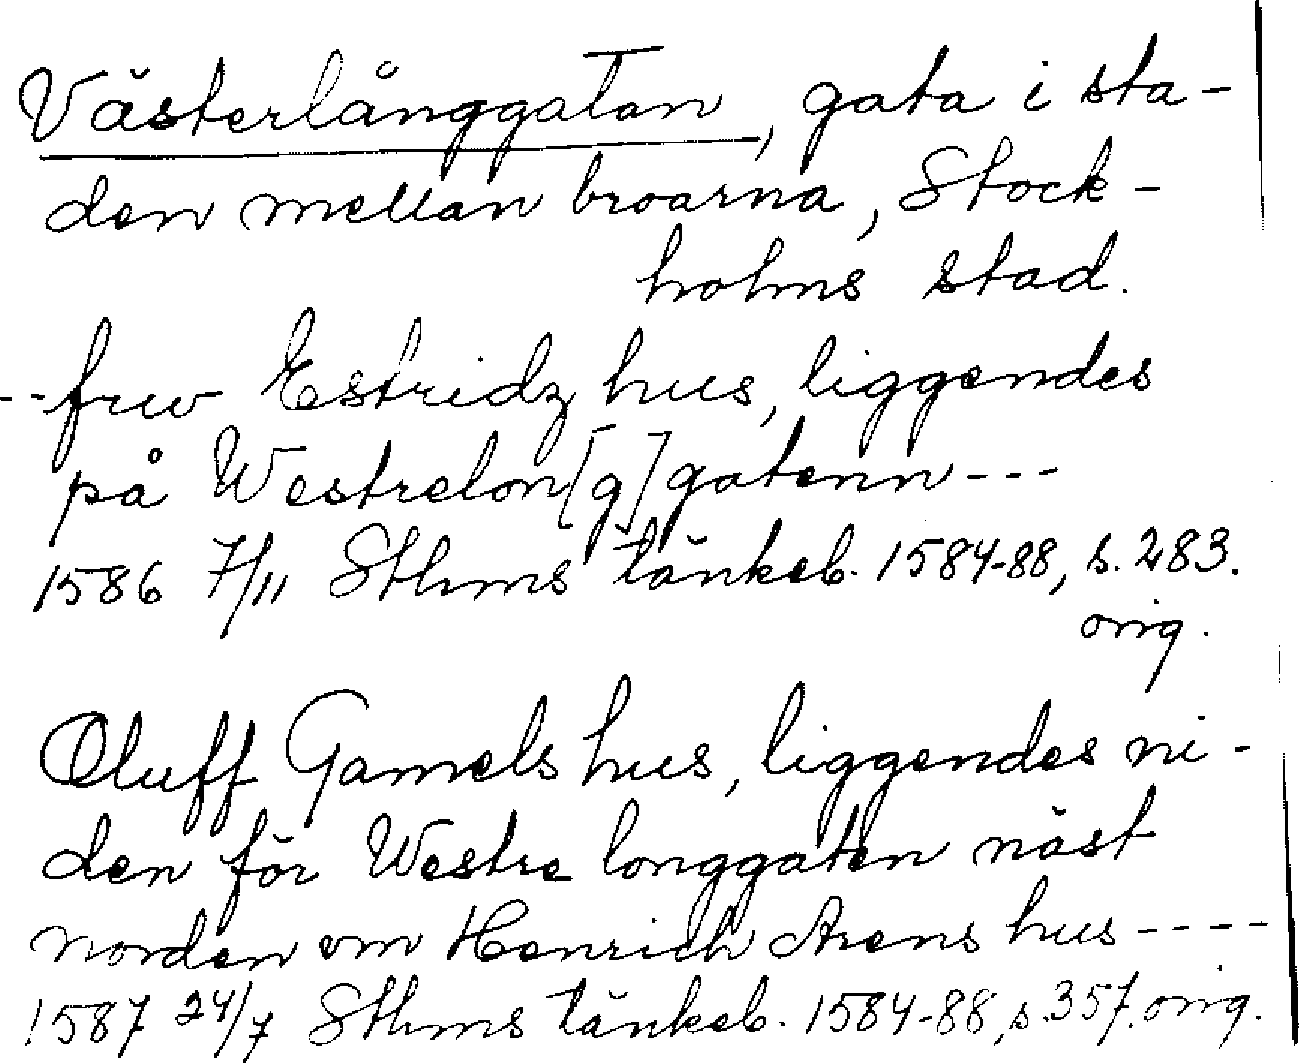 Västerlånggatan, gata i sta-
den mellan broarna, Stock-
holms stad.
-- fruw Estridz hus, liggendes
på Westrelon[g]gatenn ---
1586 7/11 Sthms tänkeb. 1584-88, s. 283.
orig.
Oluff Gamels hus, liggendes ni-
den för Westre longgaten näst
norden om Henrich Arens hus ----
1587 24/7 Sthms tänkeb. 1584-88, s. 357. orig.